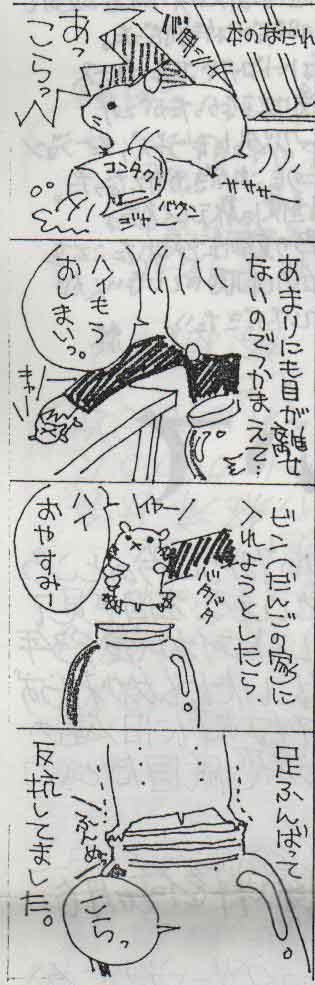 本のなだれ
あっ
こらっ
コンタクト
バタン
ジャー
サササー
あまりにも目が離せ
ないのでつかまえて…
ハイもう
おしまいっ。
キャー
ビン(だんごの家)に
入れようとしたら、
バタバタ
イヤー
ハイ
おやすみー
足ふんばって
ふんぬ
こらっ
反抗してました。